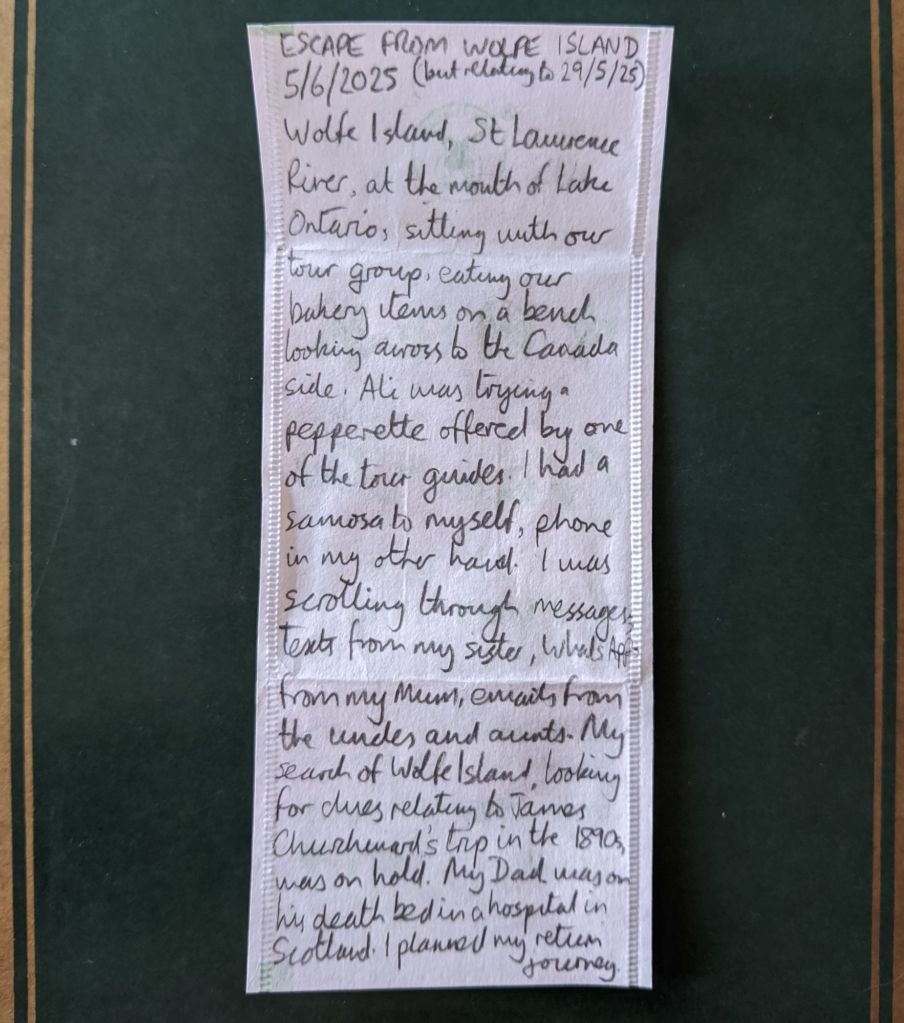 ESCAPE FROM WOLFE ISLAND
5/6/2025 (but relating to 29/5/25)
Wolfe Island, St Lawrence
River, at the mouth of Lake
Ontario, sitting with our
tour group, eating our
bakery items on a bench
looking across to the Canada
side. Ali was trying a
pepperette offered by one
of the tour guides. I had a
samosa to myself, phone
in my other hand. I was
scrolling through messages,
texts from my sister, WhatsApps
from my Mum, emails from
the uncles and aunts. My
search of Wolfe Island, looking
for clues relating to James
Churchward's trip in the 1890s,
was on hold. My Dad was on
his death bed in a hospital in
Scotland. I planned my return
journey.